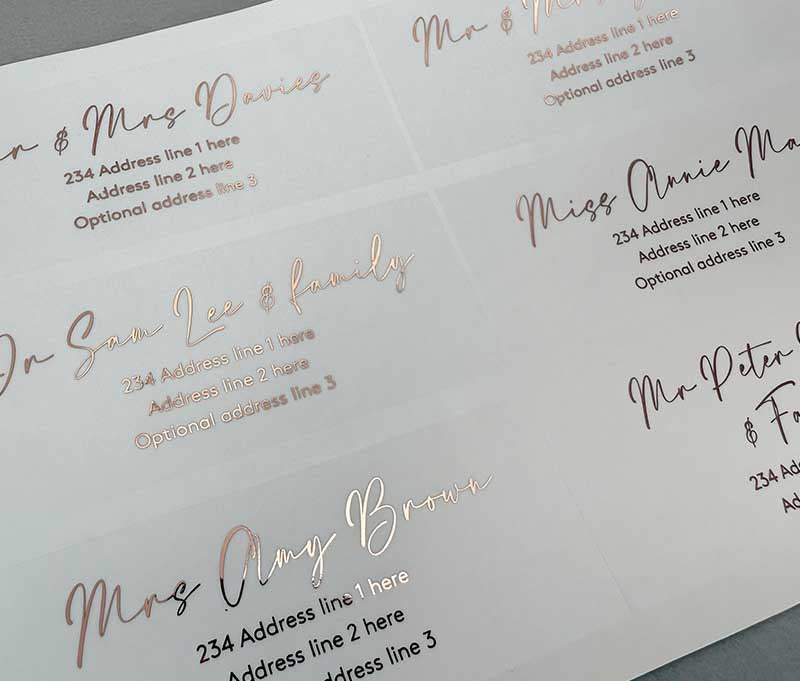 & Mrs Davies
234 Address line 1 here
Address line 2 here
Optional address line 3
Mr &
234 Address line 1 here
Address line 2 here
Optional address line 3
Dr Sam Lee & family
234 Address line 1 here
Address line 2 here
Optional address line 3
Miss Annie
234 Address line 1 here
Address line 2 here
Optional address line 3
Mrs Amy Brown
234 Address line 1 here
Address line 2 here
address line 3
Mr Peter
&
234